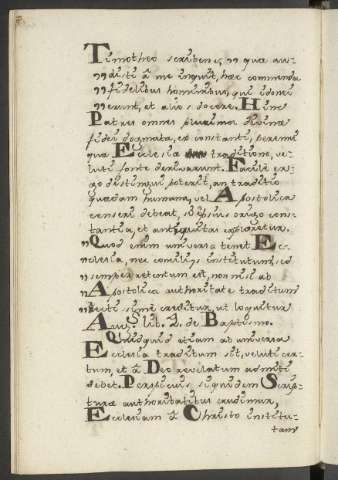 Timotheo scribens, „ quæ au-
„ disti à me inquit, hæc commenda
„ fidelibus hominibus, qui idonei
„ erunt, et alios docere. Hinc
Patres omnes plurima divina
fidei dogmata, ex constanti, perenni
que Ecclesiæ traditione, ve-
luti fonte derivarunt. Facile er-
go distingui poterit, an traditio
quædam humana, vel Apostolica
censeri debeat, si ipsius origo cons-
tantia, et antiquitas exploretur.
„ Quod enim universa tenet Ec-
clesia, nec conciliis institutum, sed
„ semper retentum est, non nisi ab
„ Apostolica authoritate traditum
„ rectissimè creditur, ut loquitur
Aug. lib. 2. de Baptismo.
Quidquid etiam ab universa
Ecclesia traditum sit, veluti cer-
tum, et à Deo revelatum admitti
debet. Perspicuis siquidem Scrip-
turæ authoritatibus erudimur,
Ecclesiam à Christo institu-
tam